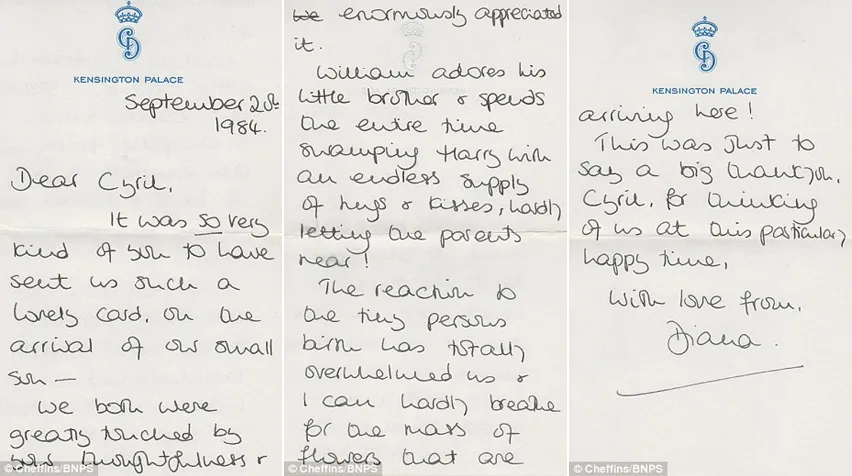 KENSINGTON PALACE
September 20th
1984.
Dear Cyril,
It was so very
kind of you to have
sent us such a
lovely card, on the
arrival of our small
son —
We both were
greatly touched by
your thoughtfulness &
© Cheffins/BNPS
We enormously appreciated
it.
William adores his
little brother & spends
the entire time
swamping Harry with
an endless supply
of hugs & kisses, hardly
letting the parents
near!
The reaction to
the tiny persons
birth has totally
overwhelmed us &
I can hardly breathe
for the mass of
flowers that are
© Cheffins/BNPS
KENSINGTON PALACE
arriving here!
This was just to
say a big thankyou,
Cyril, for thinking
of us at this particularly
happy time,
With love from,
Diana.
© Cheffins/BNPS